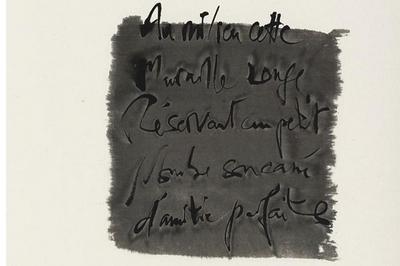 Au milieu cette
Muraille longe
Réservant un petit
Nombre son carré
d'amitié parfaite